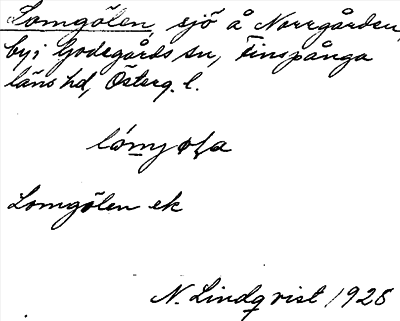 Lomgölen, sjö å Norrgården,
by i Godegårds sn, Finspånga
läns hd, Österg. l.
Lomgölen ek
N. Lindqvist 1925